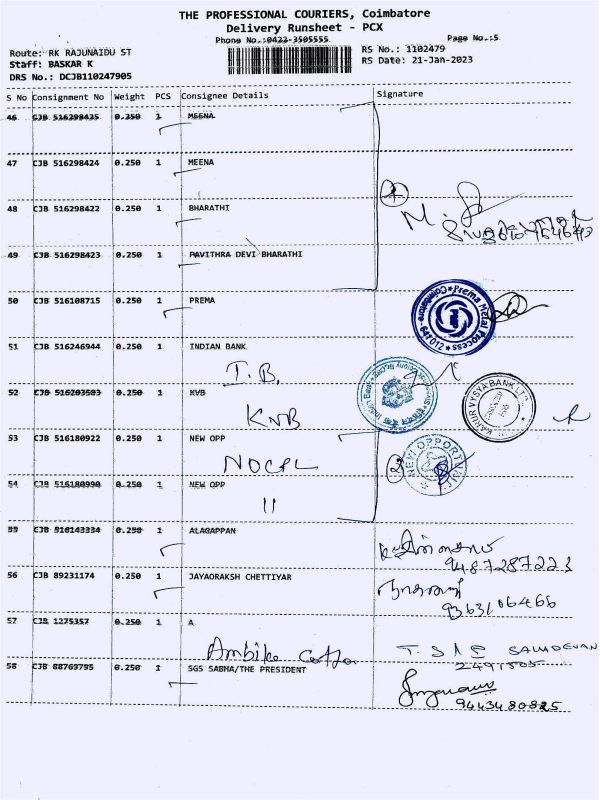 THE PROFESSIONAL COURIERS, Coimbatore
Delivery Runsheet - PCX
Phone No.:0422-3505555
Page No.:5
Route: RK RAJUNAIDU ST
RS No.: 1102479
Staff: BASKAR K
RS Date: 21-Jan-2023
DRS No.: DCJB110247905
S No Consignment No Weight PCS Consignee Details Signature
46 CJB 516298425 0.250 1 MEENA
47 CJB 516298424 0.250 1 MEENA
48 CJB 516298422 0.250 1 BHARATHI
49 CJB 516298423 0.250 1 PAVITHRA DEVI BHARATHI
50 CJB 516108715 0.250 1 PREMA
Prema Metal Process
Coimbatore
51 CJB 516246944 0.250 1 INDIAN BANK
I.B.
52 CJB 516203503 0.250 1 KVB
KVB
KARUR VYSYA BANK LTD
53 CJB 516180922 0.250 1 NEW OPP
NOCPL
2
54 CJB 516180990 0.250 1 NEW OPP
11
55 CJB 516143334 0.250 1 ALAGAPPAN
9487287223
56 CJB 89231174 0.250 1 JAYAORAKSH CHETTIYAR
9363106466
57 CJB 1275357 0.250 1 A
Ambika
58 CJB 88769795 0.250 1 SGS SABHA/THE PRESIDENT
9443480825